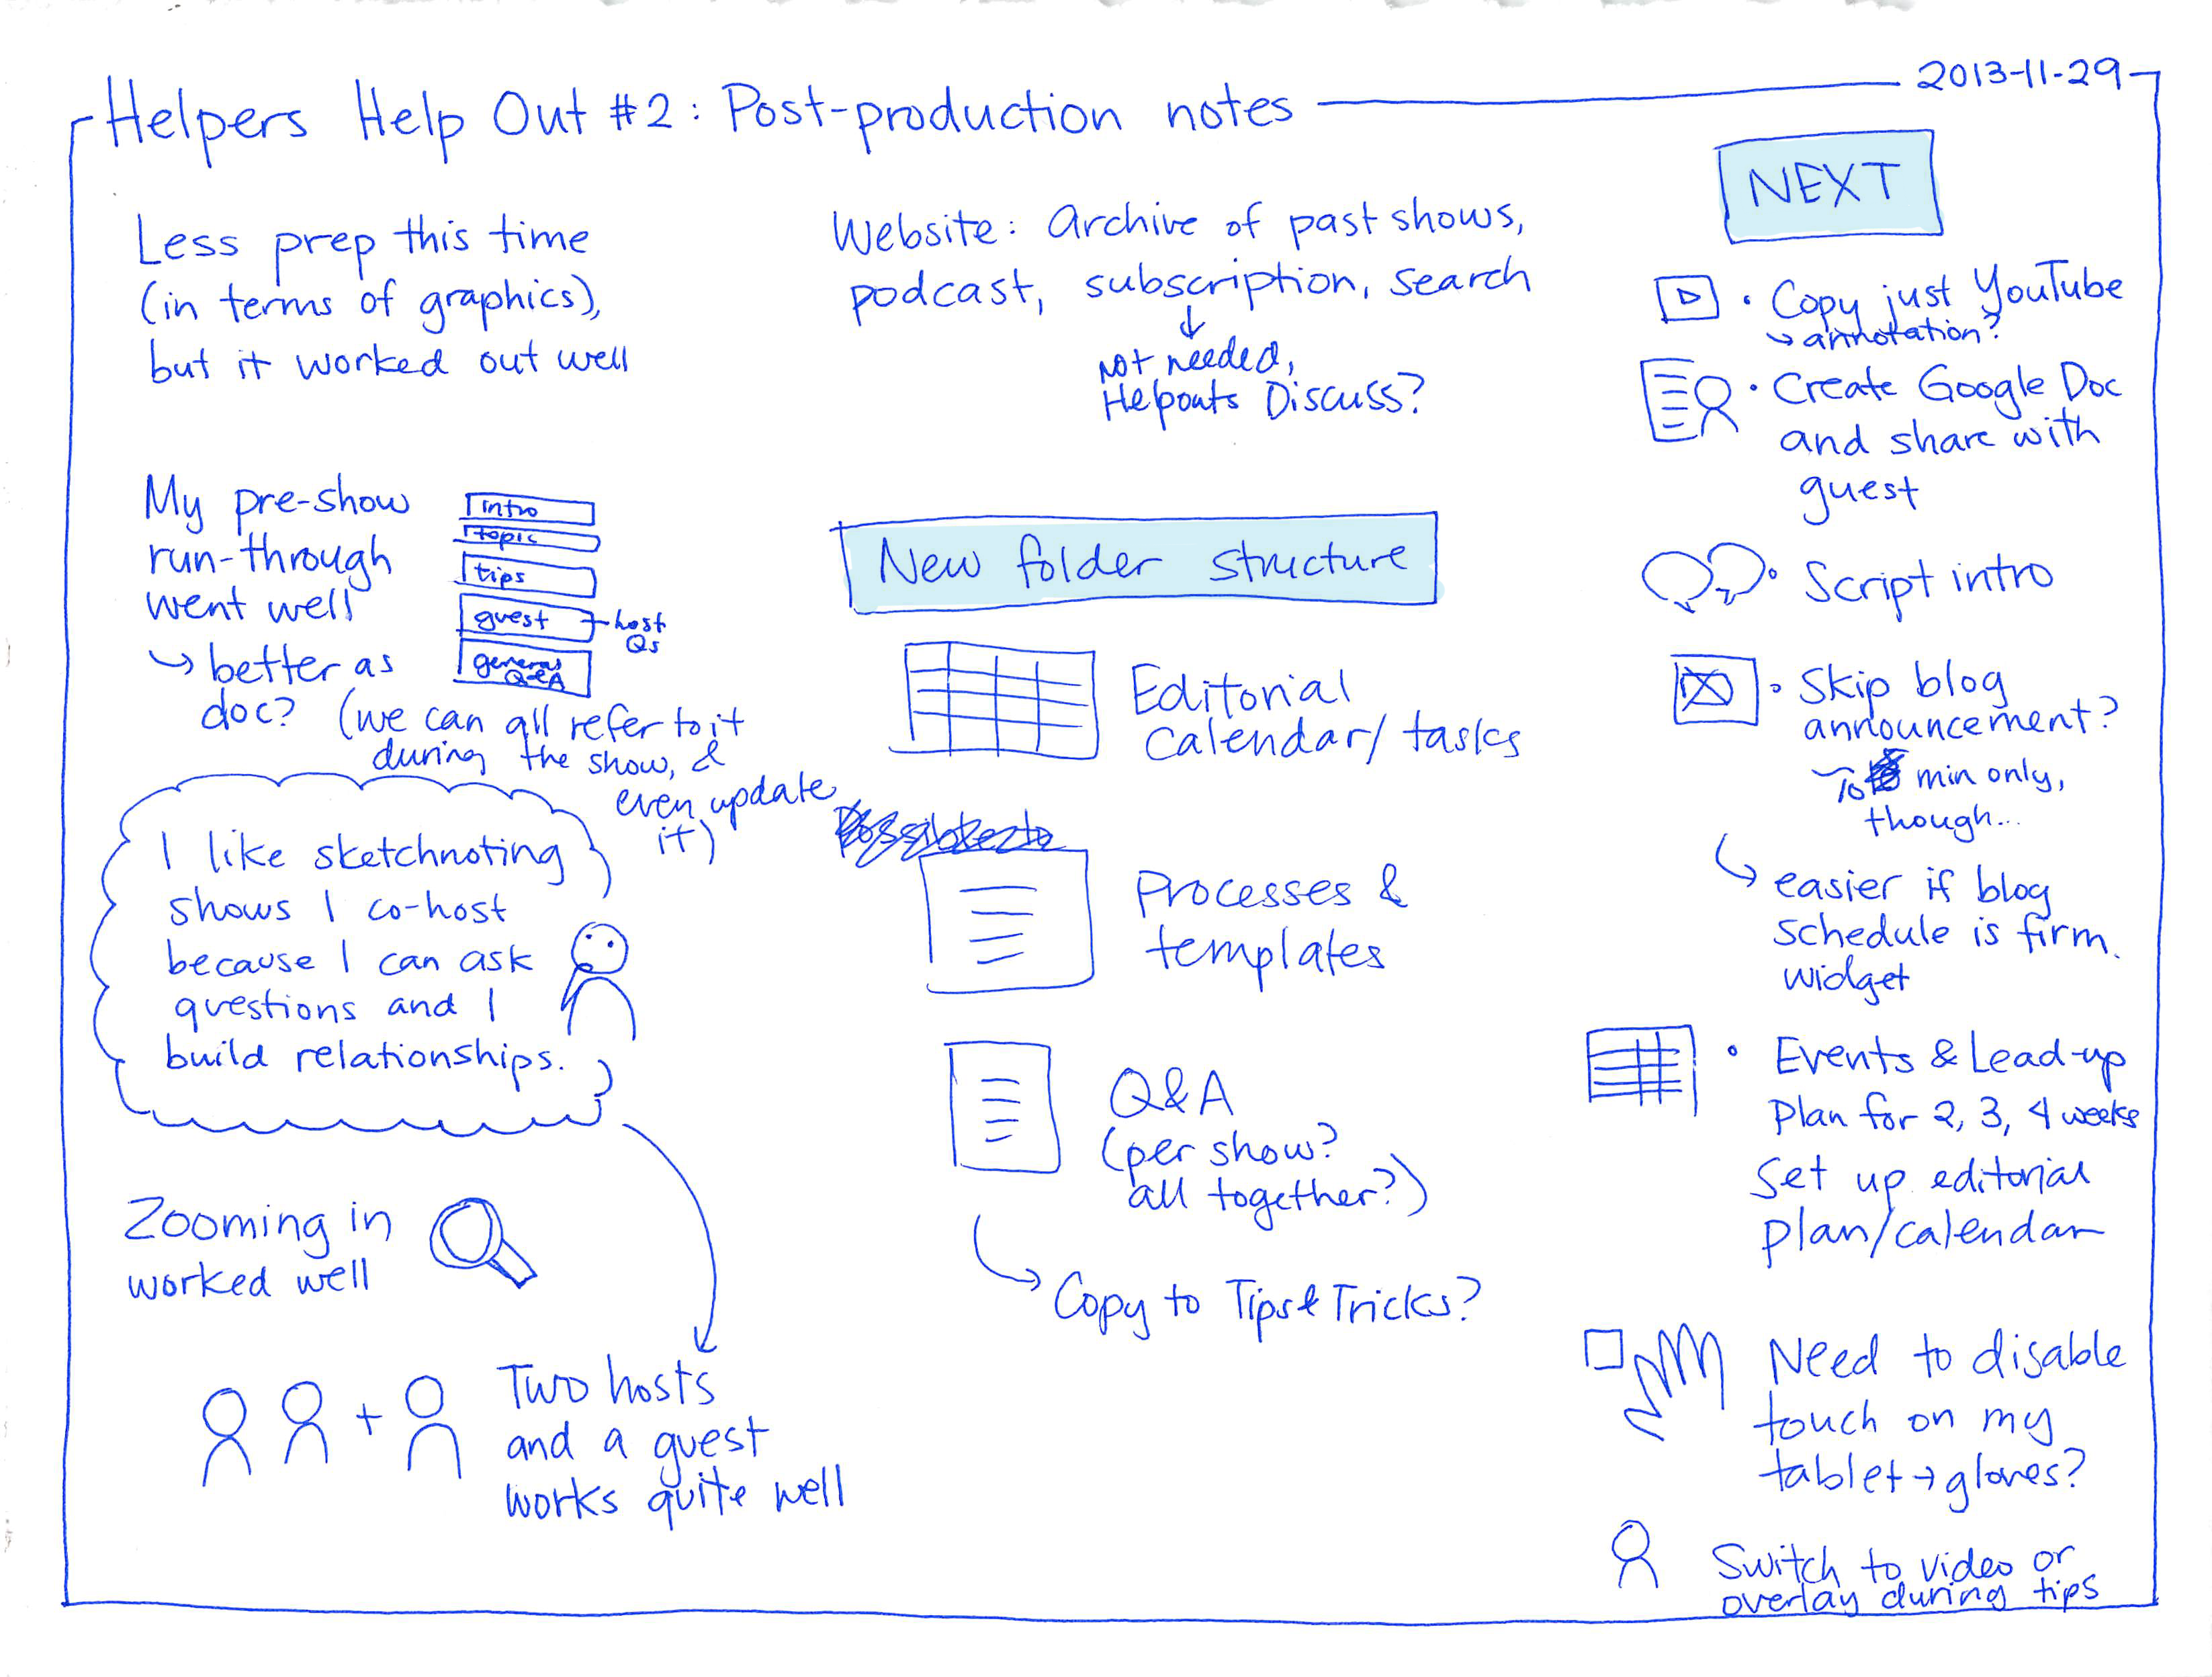 Helpers Help Out #2: Post-production notes
2013-11-29
Less prep this time
(in terms of graphics),
but it worked out well
My pre-show
run-through
went well
↳ better as
doc? (we can all refer to it
during the show, &
even update
it)
intro
topic
tips
guest
host
Qs
general
Q&A
I like sketchnoting
shows I co-host
because I can ask
questions and I
build relationships.
Zooming in
worked well
+
Two hosts
and a guest
works quite well
Website: Archive of past shows,
podcast, subscription, search
↓
not needed,
Helpouts Discuss?
New folder structure
Editorial
calendar/tasks
Processes &
templates
Q&A
(per show?
all together?)
Copy to Tips & Tricks?
NEXT
• Copy just YouTube
↳ annotation?
• Create Google Doc
and share with
guest
• Script intro
• Skip blog
announcement?
min only,
though...
↳ easier if blog
schedule is firm.
widget
• Events & Lead-up
Plan for 2, 3, 4 weeks
Set up editorial
plan/calendar
Need to disable
touch on my
tablet → gloves?
Switch to video or
overlay during tips